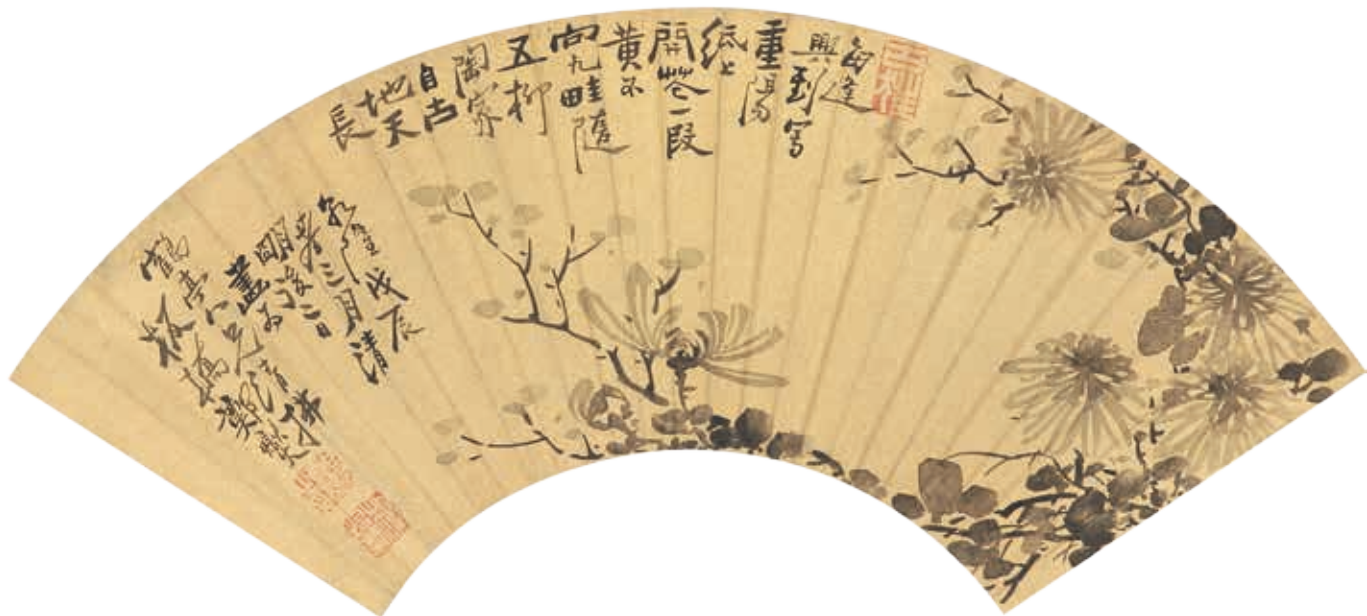 每逢
興到寫
重陽
紙上
開花一段
黃不
向九畦隨
五柳
陶家
自古
地天
長
乾隆戊辰
春三月清
明後二日
為
鶴亭八兄清拂
板橋鄭燮